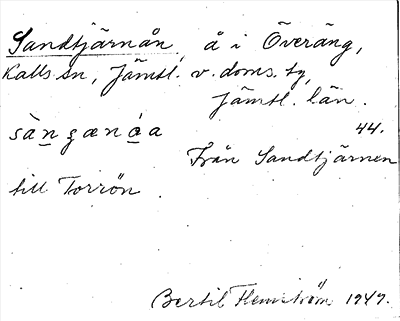 Sandtjärnån, å i Överäng,
Kalls sn, Jämtl. v. doms. tg,
Jämtl. län.
44.
Från Sandtjärnen
till Torrön
Bertil Flemström 1949.